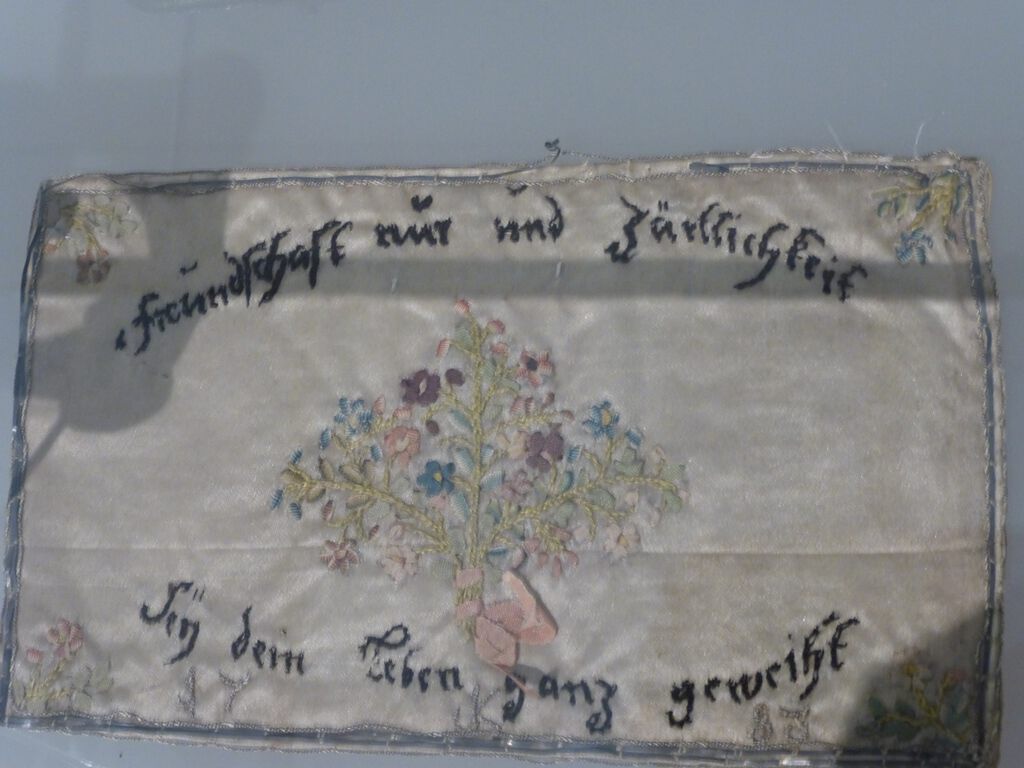 Freündschaft nür ünd Zärtlichkeit
Seÿ dein Leben ganz geweiht
17 K 83